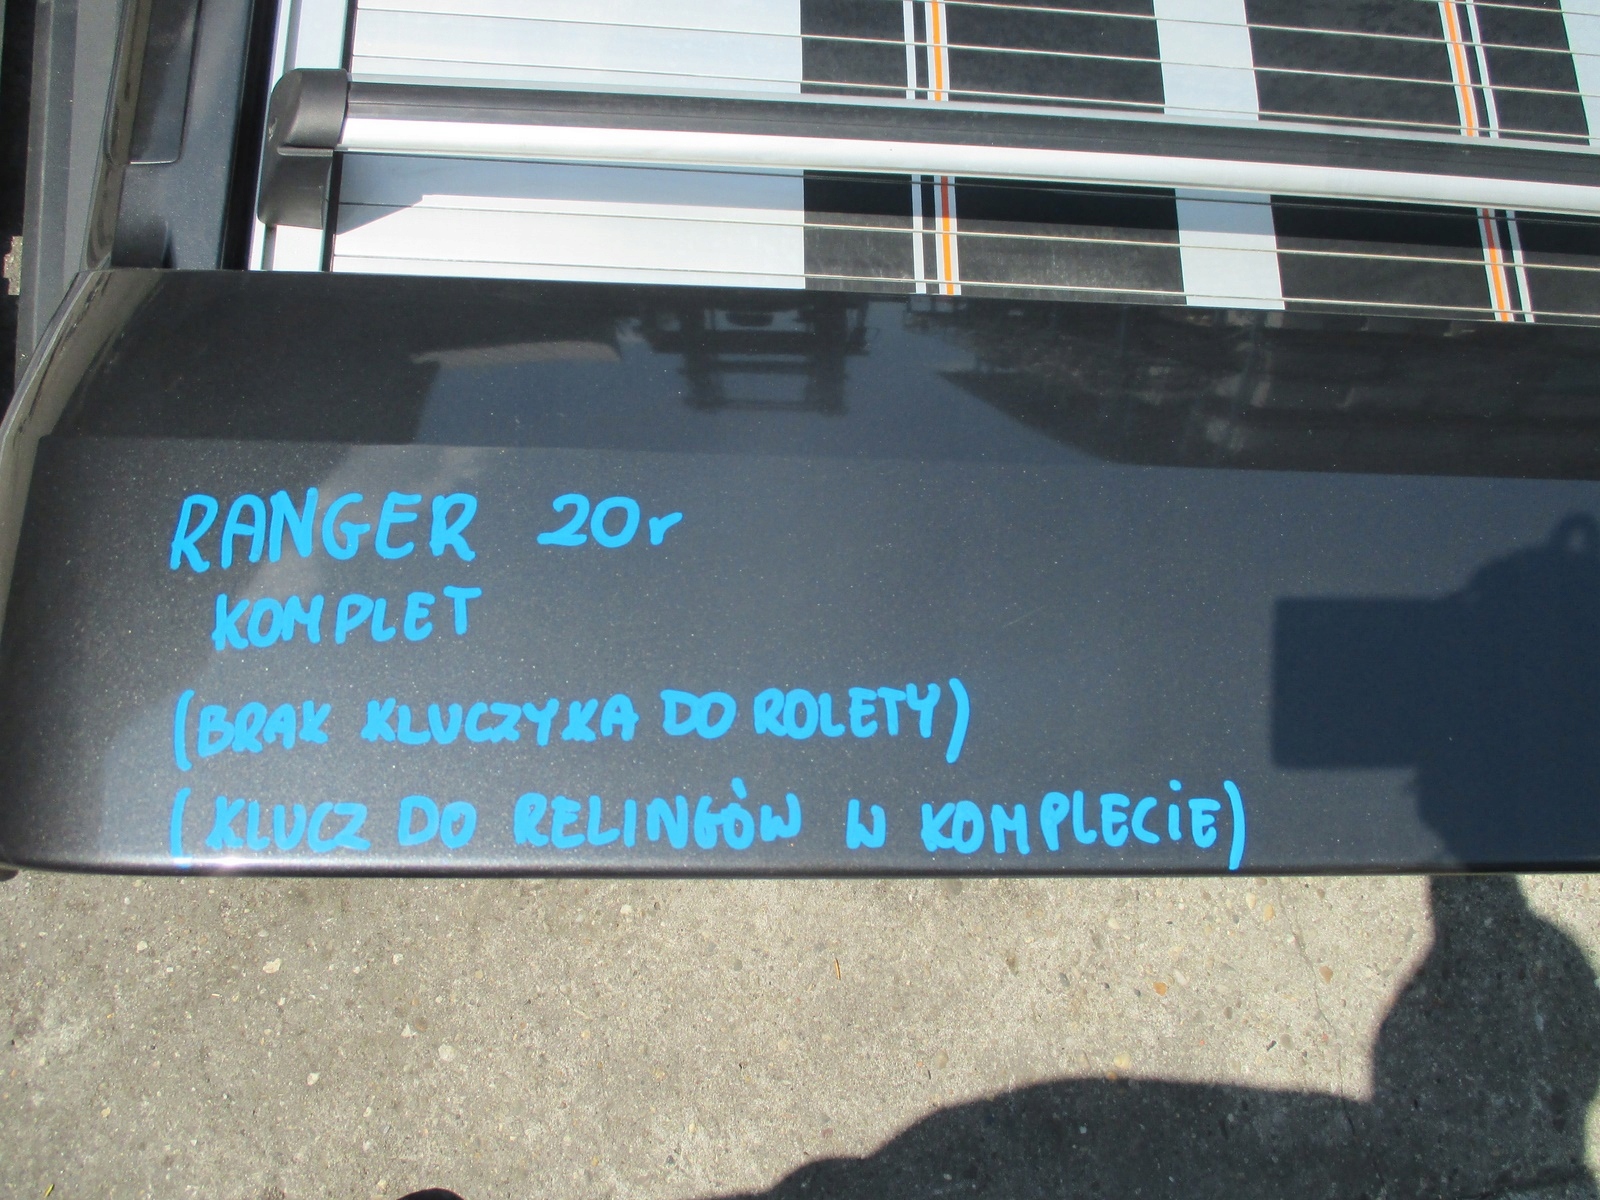 RANGER 20r
KOMPLET
(BRAK KLUCZYKA DO ROLETY)
(KLUCZ DO RELINGÓW W KOMPLECiE)